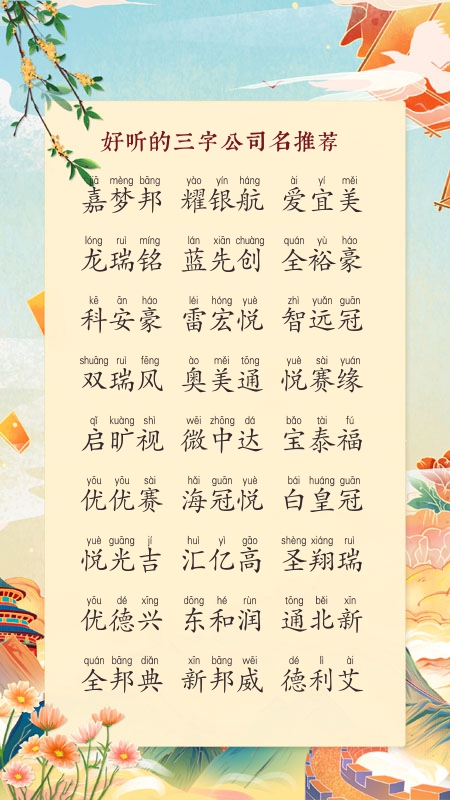 好听的三字公司名推荐
jiā mèng bāng yào yín háng ài yí měi
嘉梦邦 耀银航 爱宜美
lóng ruì míng lán xiān chuàng quán yù háo
龙瑞铭 蓝先创 全裕豪
kē ān háo léi hóng yuè zhì yuǎn guān
科安豪 雷宏悦 智远冠
shuāng ruì fēng ào měi tōng yuè sài yuán
双瑞风 奥美通 悦赛缘
qǐ kuàng shì wēi zhōng dá bǎo tài fú
启旷视 微中达 宝泰福
yōu yōu sài hǎi guān yuè bái huáng guān
优优赛 海冠悦 白皇冠
yuè guāng jí huì yì gāo shèng xiáng ruì
悦光吉 汇亿高 圣翔瑞
yōu dé xīng dōng hé rùn tōng běi xīn
优德兴 东和润 通北新
quán bāng diǎn xīn bāng wēi dé lì ài
全邦典 新邦威 德利艾